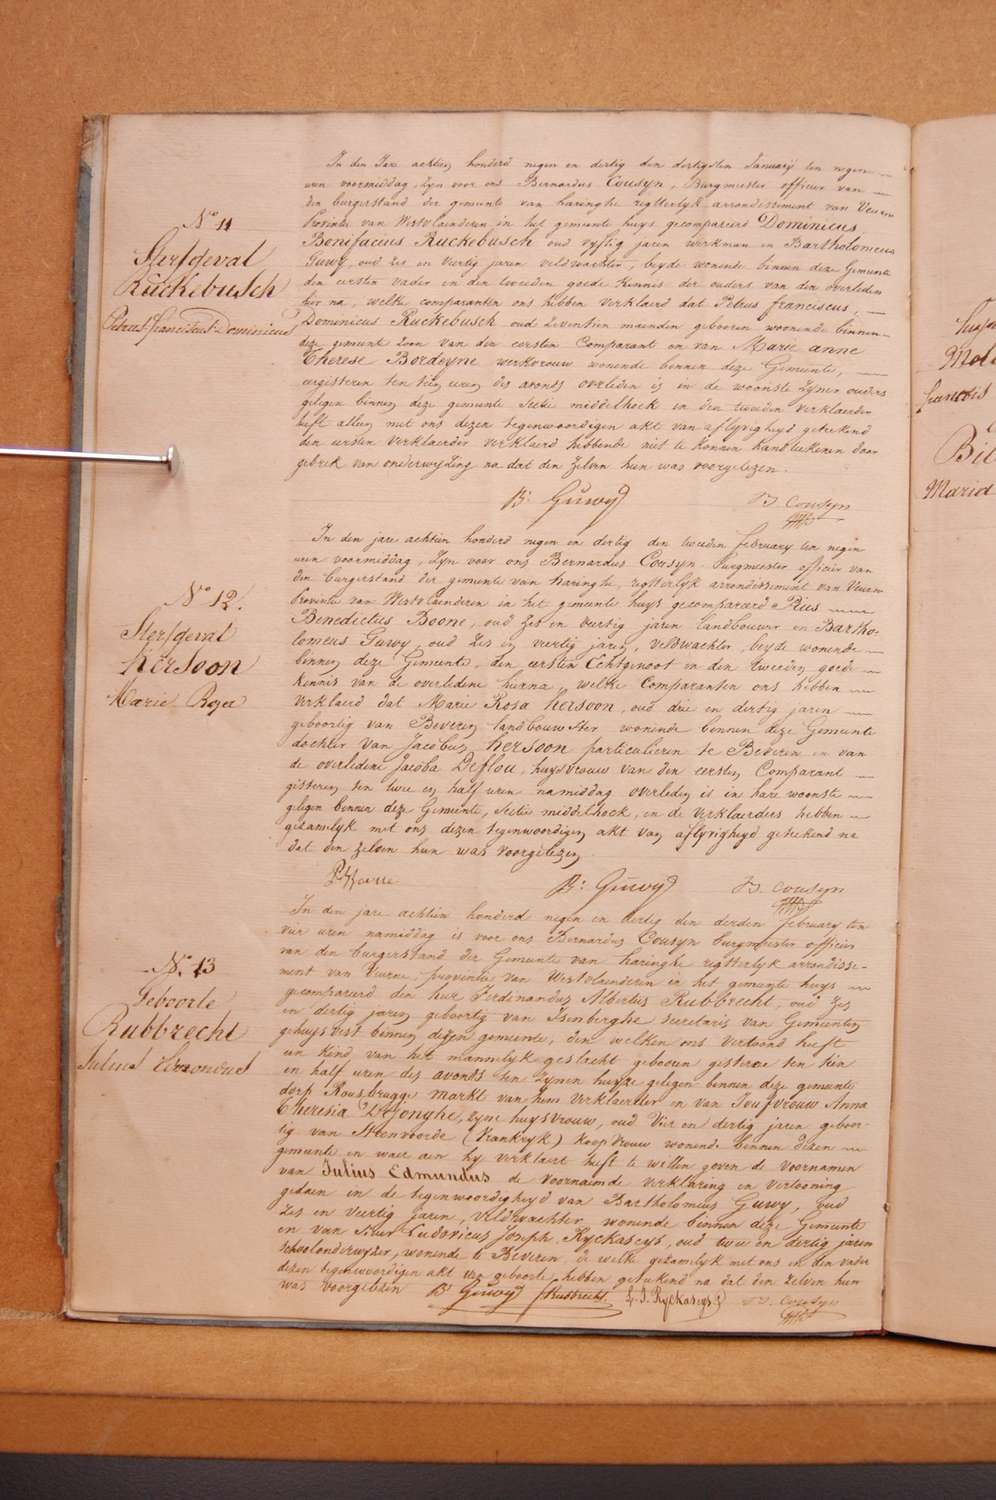 N° 11
Sterfgeval
Ruckebusch
Petrus franciscus Dominicus
In den Jare achtien honderd negen en dertig den dertigsten January ten negen
uren voormiddag, Zyn voor ons Bernardus Cousyn, Burgmeester officier van
den burgerstand der gemeente van haringhe regtterlyk arrondissement van Veurne
Provintie van Westvlaenderen in het gemeente huys gecompareerd Dominicus
Bonifacius Ruckebusch oud vyftig jaren werkman en Bartholomeus
Guwy, oud zes en viertig jaren veldwachter, beyde wonende binnen deze Gemeente
den eersten vader en den tweeden goede kennis der ouders van den overleden
hier na, welke comparanten ons hebben verklaerd dat Petrus franciscus,
Dominicus Ruckebusch oud zeventien maenden geboren wonende binnen
deze gemeente zoon van den eersten Comparant en van Marie anne
Therese Bordeyne werkvrouw wonende binnen deze Gemeente,
eergisteren ten tien uren des avonds overleden is in de woonste zyner ouders
gelegen binnen deze gemeente sectie middelhoek en den tweeden verklaerder
heeft alleen met ons dezen tegenwoordigen akt van aflyvigheyd geteekend
den eersten verklaerder verklaerd hebbende niet te konnen handteekenen door
gebrek van onderwyzing na dat den zelven hun was voorgelezen.
B: Guwy B. Cousyn
N° 12.
Sterfgeval
hersoon
Marie Roza
In den jare achtien honderd negen en dertig den tweeden february ten negen
uren voormiddag, Zyn voor ons Bernardus Cousyn Burgmeester officier van
den burgerstand der gemeente van haringhe, regtterlyk arrondissement van Veurne
Provintie van Westvlaenderen in het gemeente huys gecompareerd Pius
Benedictus Boone, oud zes en dertig jaren landbouwer en Bartho-
lomeus Guwy oud zes en viertig jaren, veldwachter, beyde wonende
binnen deze Gemeente, den eersten Echtgenoot en den tweeden goede
kennis van de overledene hierna, welke Comparanten ons hebben
verklaerd dat Marie Rosa hersoon, oud drie en dertig jaren
geboortig van Beveren landbouwster wonende binnen deze Gemeente
dochter van Jacobus hersoon particulieren te Beveren en van
de overledene Jacoba Deflou, huysvrouw van den eersten Comparant
gisteren ten twee en half uren namiddag overleden is in hare woonste
gelegen binnen deze Gemeente, sectie middelhoek, en de verklaerders hebben
gezamelyk met ons dezen tegenwoordigen akt van aflyvigheyd geteekend na
dat den zelven hun was voorgelezen.
B: Guwy B. Cousyn
N° 13
Geboorte
Rubbrecht
Julius Edmondus
In den jare achtien honderd negen en dertig den derden february ten
vier uren namiddag is voor ons Bernardus Cousyn burgmeester officier
van den burgerstand der Gemeente van haringhe regtterlyk arrondisse-
ment van Veurne, provintie van Westvlaenderen in het gemeente huys
gecompareerd den heer Ferdinandus Albertus Rubbrecht, oud zes
en dertig jaren geboortig van Isenberghe secretaris van Gemeenten
gehuysvest binnen dezen gemeente, den welken ons vertoond heeft
een kind van het mannelyk geslacht geboren gisteren ten tien
en half uren des avonds ten zynen huyze gelegen binnen deze gemeente
dorp Rousbrugge markt van hem verklaerder en van Joufvrouw Anna
Theresia DeJonghe, zyne huysvrouw, oud vier en dertig jaren geboor-
tig van Steenvoorde (Vrankryk) koopvrouw wonende binnen dezen
gemeente en waer aen hy verklaert heeft te willen geven de voornamen
van Julius Edmundus de voornaemde verklaring en vertooning
gedaen in de tegenwoordigheyd van Bartholomeus Guwy, oud
zes en viertig jaren, veldwachter wonende binnen deze Gemeente
en van sieur Ludovicus Joseph Ryckaseys, oud twee en dertig jaren
schoolonderwyzer, wonende te Beveren, de welke gezamelyk met ons en den vader
dezen tegenwoordigen akt van geboorte hebben geteekend na dat den zelven hun
was voorgelezen B: Guwy f Rubbrecht L. J. Ryckaseys B. Cousyn
francois
Maria